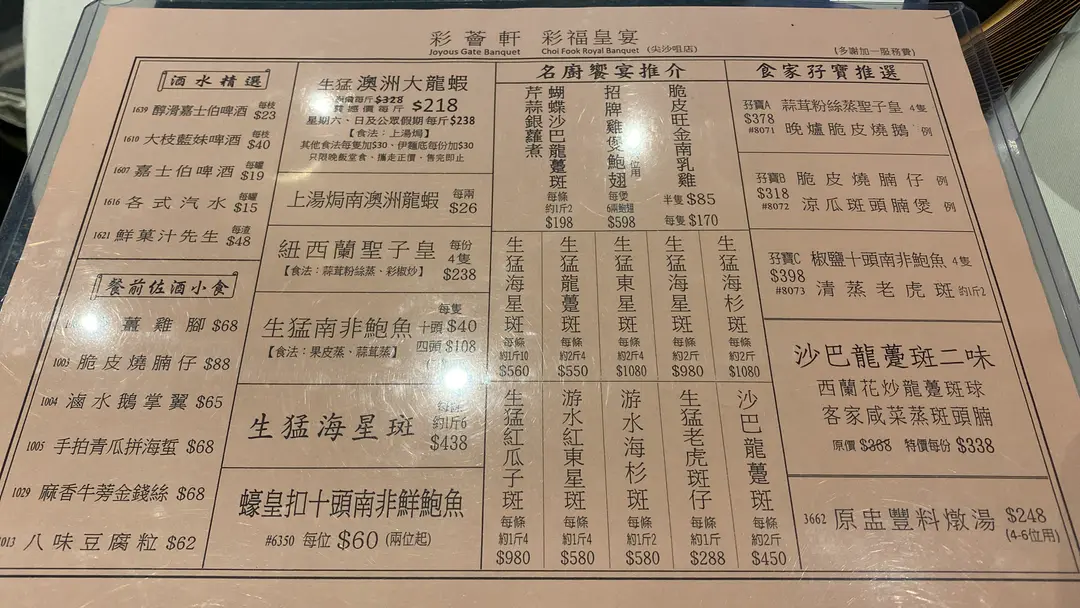 彩薈軒 彩福皇宴
Joyous Gate Banquet Choi Fook Royal Banquet (尖沙咀店)
(多謝加一服務費)
酒水精選
1639 醇滑嘉士伯啤酒 每枝 $23
1610 大枝藍妹啤酒 每枝 $40
1607 嘉士伯啤酒 每罐 $19
1616 各式汽水 每罐 $15
1621 鮮菓汁先生 每渣 $48
餐前佐酒小食
薑雞腳 $68
1003 脆皮燒腩仔 $88
1004 滷水鵝掌翼 $65
1005 手拍青瓜拼海蜇 $68
1029 麻香牛蒡金錢絲 $68
1013 八味豆腐粒 $62
生猛澳洲大龍蝦
每斤 $328
價每斤 $218
星期六、日及公眾假期 每斤$238
【食法:上湯焗】
其他食法每隻加$30、伊麵底每份加$30
只限晚飯堂食.攜走正價.售完即止
上湯焗南澳洲龍蝦 每兩 $26
紐西蘭聖子皇 每份 4隻 $238
【食法:蒜茸粉絲蒸、彩椒炒】
生猛南非鮑魚 每隻
十頭 $40
四頭 $108
【食法:果皮蒸、蒜茸蒸】
生猛海星斑 約1斤6 $438
蠔皇扣十頭南非鮮鮑魚
#6350 每位 $60 (兩位起)
名廚饗宴推介
蝴蝶沙巴龍躉斑
芹蒜銀蘿煮
每條
約1斤2
$198
招牌雞煲鮑翅
位用
每煲
6兩鮑翅
$598
脆皮旺金南乳雞
半隻 $85
每隻 $170
生猛海星斑 每條 約1斤10 $560
生猛龍躉斑 每條 約2斤4 $550
生猛東星斑 每條 約2斤4 $1080
生猛海星斑 每條 約2斤4 $980
生猛海杉斑 每條 約2斤 $1080
生猛紅瓜子斑 每條 約1斤4 $980
游水紅東星斑 每條 約1斤4 $580
游水海杉斑 每條 約1斤2 $580
生猛老虎斑仔 每條 約1斤 $288
沙巴龍躉斑 每條 約2斤 $450
食家孖寶推選
孖寶A $378 #8071
蒜茸粉絲蒸聖子皇 4隻
晚爐脆皮燒鵝 例
孖寶B $318 #8072
脆皮燒腩仔 例
涼瓜斑頭腩煲 例
孖寶C $398 #8073
椒鹽十頭南非鮑魚 4隻
清蒸老虎斑 約1斤2
沙巴龍躉斑二味
西蘭花炒龍躉斑球
客家咸菜蒸斑頭腩
原價 $368 特價每份 $338
3662 原盅豐料燉湯 $248
(4-6位用)